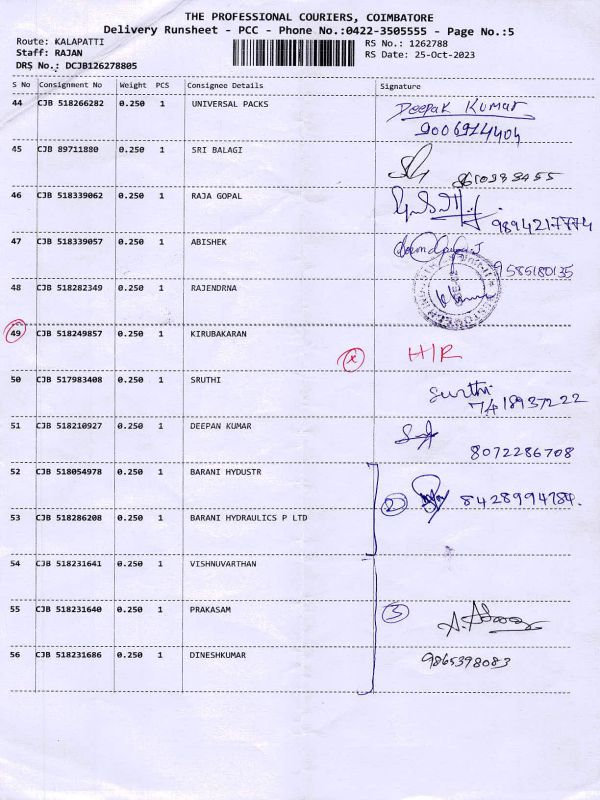 THE PROFESSIONAL COURIERS, COIMBATORE
Delivery Runsheet - PCC - Phone No.:0422-3505555 - Page No.:5
Route: KALAPATTI
RS No.: 1262788
Staff: RAJAN
RS Date: 25-Oct-2023
DRS No.: DCJB126278805
S No Consignment No Weight PCS Consignee Details Signature
44 CJB 518266282 0.250 1 UNIVERSAL PACKS Deepak Kumar
9006974404
45 CJB 89711880 0.250 1 SRI BALAGI
46 CJB 518339062 0.250 1 RAJA GOPAL
9894217774
47 CJB 518339057 0.250 1 ABISHEK
9585180135
48 CJB 518282349 0.250 1 RAJENDRNA
49 CJB 518249857 0.250 1 KIRUBAKARAN
x H/R
50 CJB 517983408 0.250 1 SRUTHI
Surthi
7418937222
51 CJB 518210927 0.250 1 DEEPAN KUMAR
8072286708
52 CJB 518054978 0.250 1 BARANI HYDUSTR
2 8428994784.
53 CJB 518286208 0.250 1 BARANI HYDRAULICS P LTD
54 CJB 518231641 0.250 1 VISHNUVARTHAN
55 CJB 518231640 0.250 1 PRAKASAM 3
56 CJB 518231686 0.250 1 DINESHKUMAR 9865398083